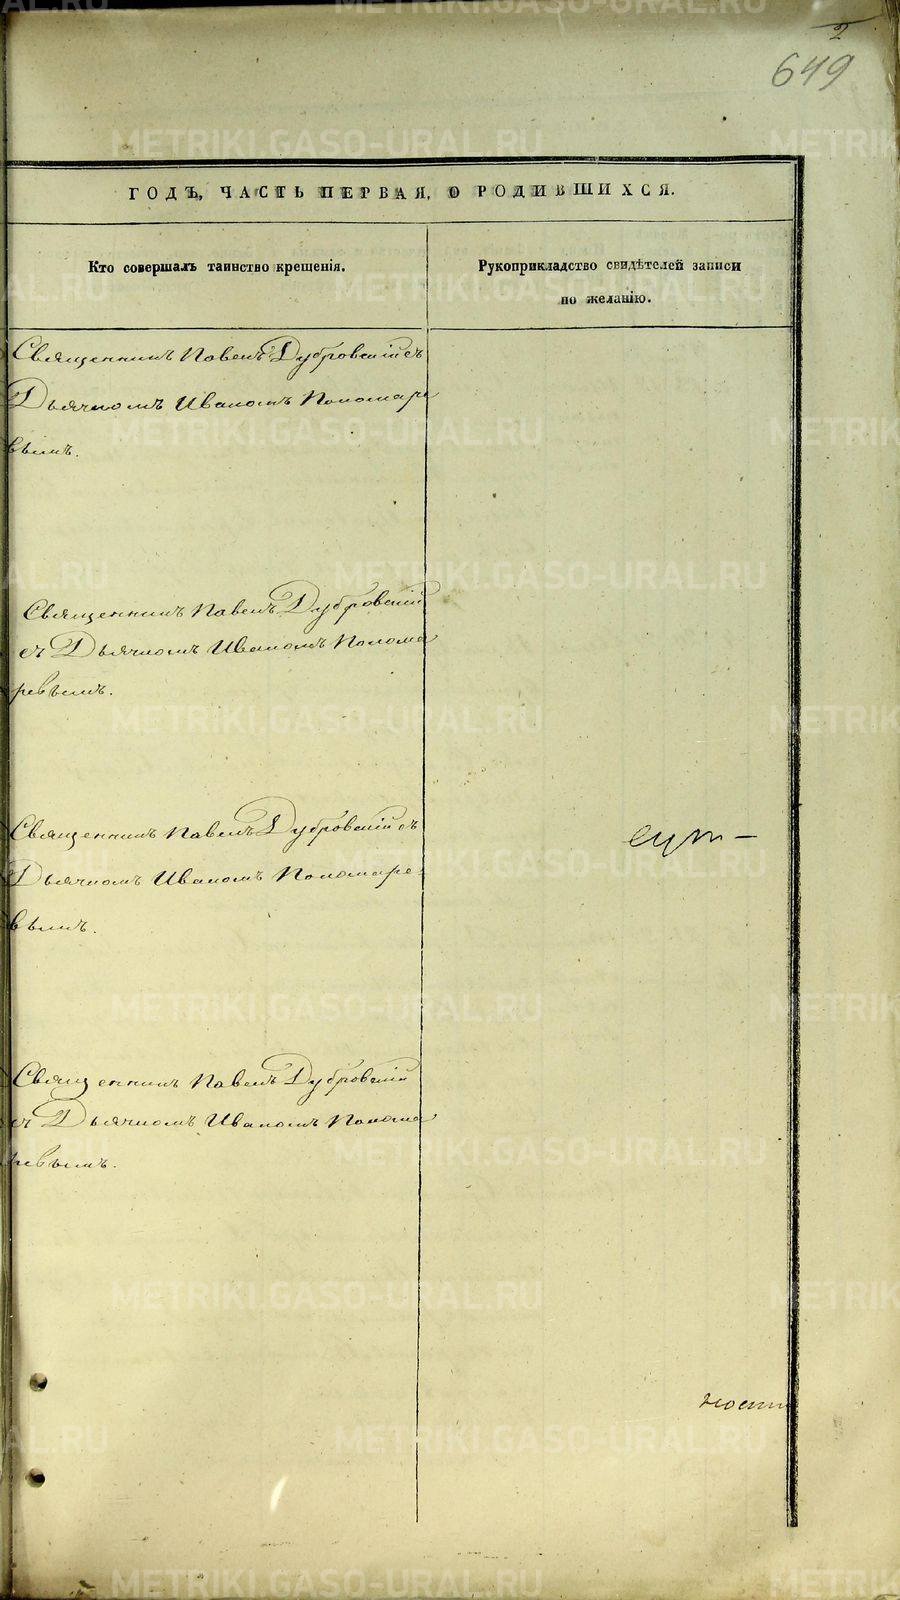 2
649
ГОДЪ, ЧАСТЬ ПЕРВАЯ, О РОДИВШИХСЯ.
Кто совершалъ таинство крещенія.
Рукоприкладство свидѣтелей записи
по желанію.
Священникъ Павелъ Дубровскій съ
Дьячкомъ Иваномъ Пономаре
вымъ.
Священникъ Павелъ Дубровскій
съ Дьячкомъ Иваномъ Понома
ревымъ.
Священникъ Павелъ Дубровскій съ
Дьячкомъ Иваномъ Пономаре-
вымъ.
Священникъ Павелъ Дубровскій
съ Дьячкомъ Иваномъ Понома
ревымъ.
METRIKI.GASO-URAL.RU